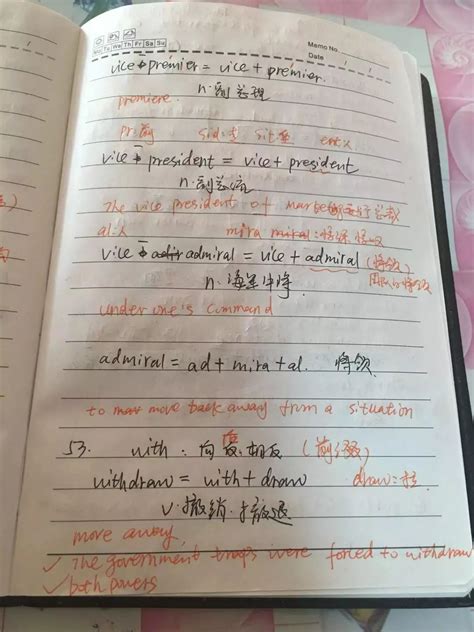 Mo Tu We Th Fr Sa Su
Memo No.
Date / /
vice-premier = vice + premier.
n. 副总理
premiere.
pr:前 sid:坐 sit坐 ent人
vice-president = vice + president
n. 副总统
The vice president of
al:人 mira
vice-admiral = vice + admiral (将领)
n. 海军中将
under one's command
admiral = ad + mira + al. 将领
to move back away from a situation
53. with: 向后.相反 (前缀)
withdraw = with + draw draw:拉
v. 撤销.撤退
move away,
✓ The government troops were forced to withdraw
✓ both powers